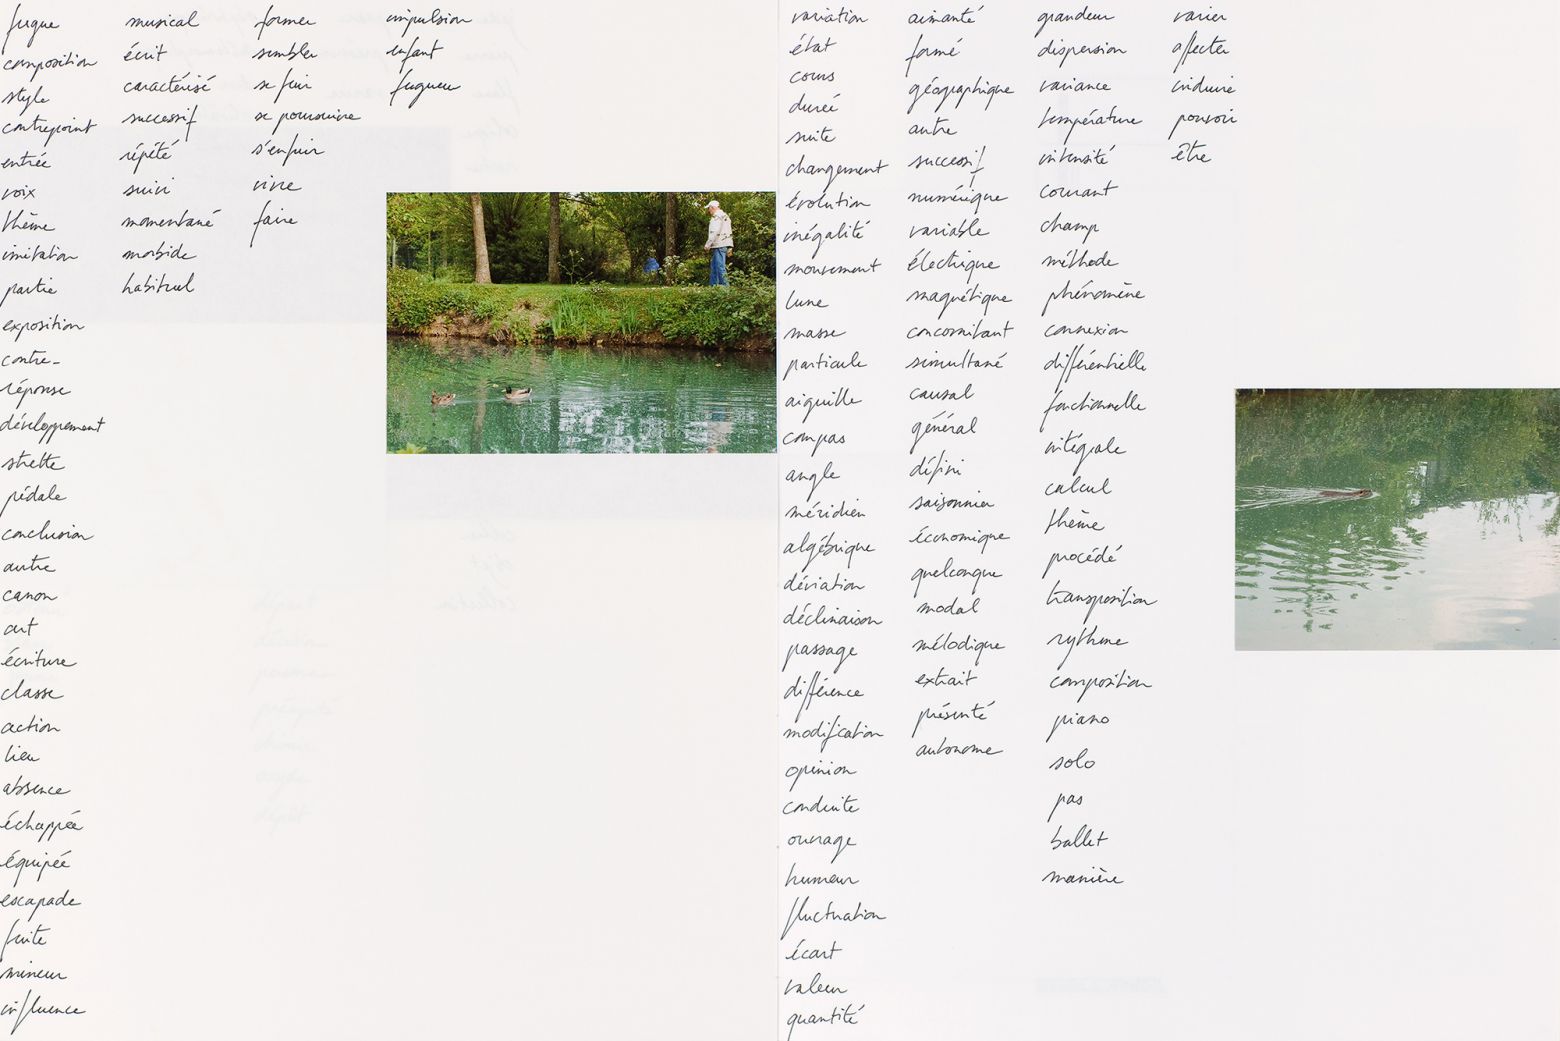 fugue
composition
style
contrepoint
entrée
voix
thème
imitation
partie
exposition
contre-
réponse
développement
strette
pédale
conclusion
autre
canon
art
écriture
classe
action
lieu
absence
échappée
équipée
escapade
fuite
mineur
influence
musical
écrit
caractérisé
successif
répété
suivi
momentané
morbide
habituel
former
sembler
se fuir
se poursuivre
s'enfuir
vivre
faire
impulsion
enfant
fugueur
variation
état
cours
durée
suite
changement
évolution
inégalité
mouvement
lune
masse
particule
aiguille
compas
angle
méridien
algébrique
déviation
déclinaison
passage
différence
modification
opinion
conduite
ouvrage
humeur
fluctuation
écart
valeur
quantité
aimanté
formé
géographique
autre
successif
numérique
variable
électrique
magnétique
concomitant
simultané
causal
général
défini
saisonnier
économique
quelconque
modal
mélodique
extrait
présenté
autonome
grandeur
dispersion
variance
température
intensité
courant
champ
méthode
phénomène
connexion
différentielle
fonctionnelle
intégrale
calcul
thème
procédé
transposition
rythme
composition
piano
solo
pas
ballet
manière
varier
affecter
induire
pouvoir
être